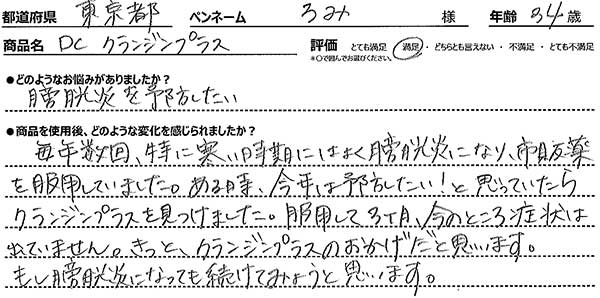 都道府県 東京都 ペンネーム るみ 様 年齢 34 歳
商品名 DC クランジンプラス 評価 とても満足 ・ 満足 ・ どちらとも言えない ・ 不満足 ・ とても不満足
*○で囲んでお選びください。
●どのようなお悩みがありましたか?
膀胱炎を予防したい
●商品を使用後、どのような変化を感じられましたか?
毎年数回、特に寒い時期にはよく膀胱炎になり、市販薬
を服用していました。ある時、今年は予防したい!と思っていたら
クランジンプラスを見つけました。服用して3ケ月、今のところ症状は
出ていません。きっと、クランジンプラスのおかげだと思います。
もし膀胱炎になっても続けてみようと思います。